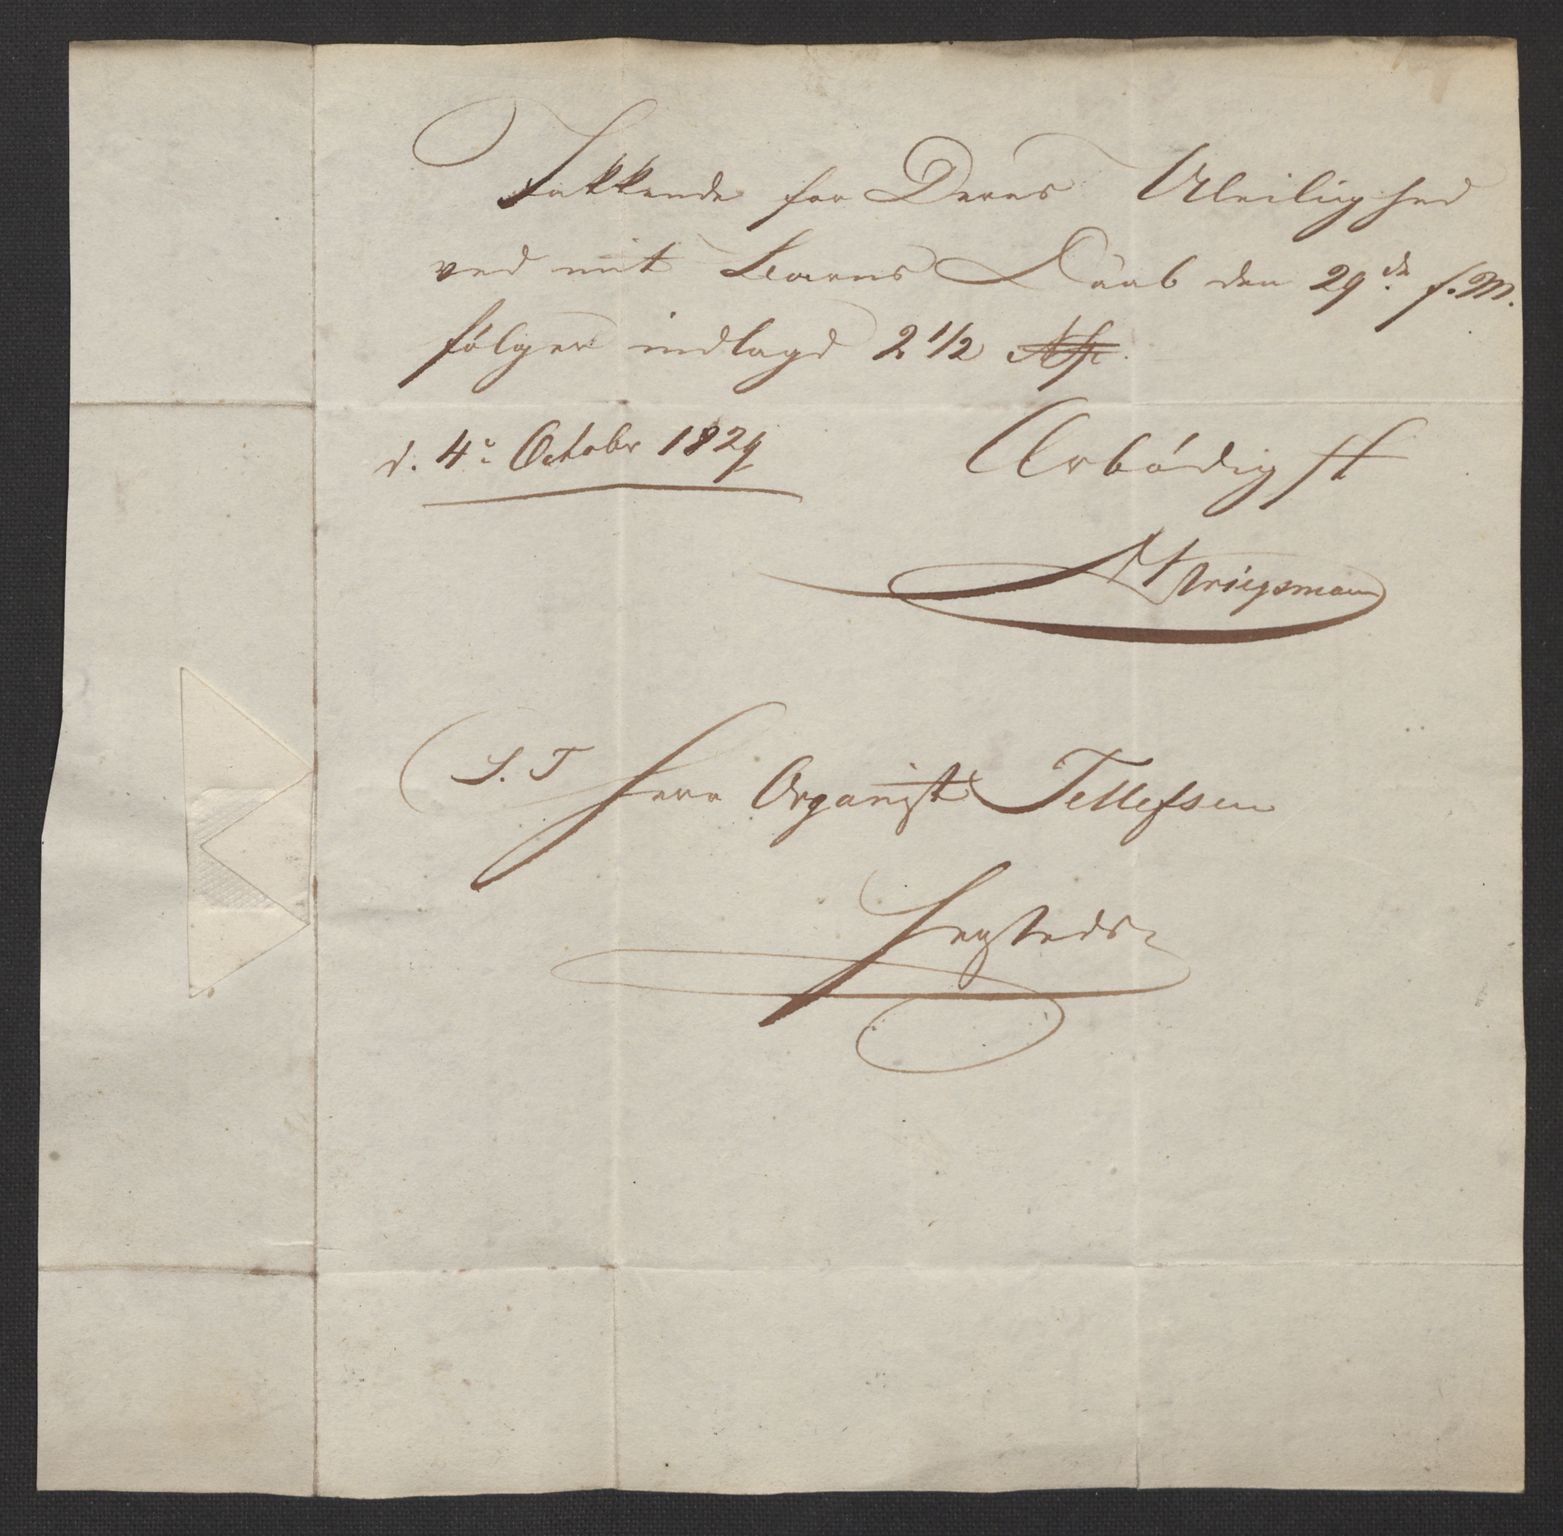 Takkende for Deres Uleilighed
ved mit Barns Daab den 29de f. M.
følger indlagd 2 1/2
d. 4de Octobr 1829
Ærbødigst
Kriegsmann
S. T Herr Organist Tellefsen
Hersteds